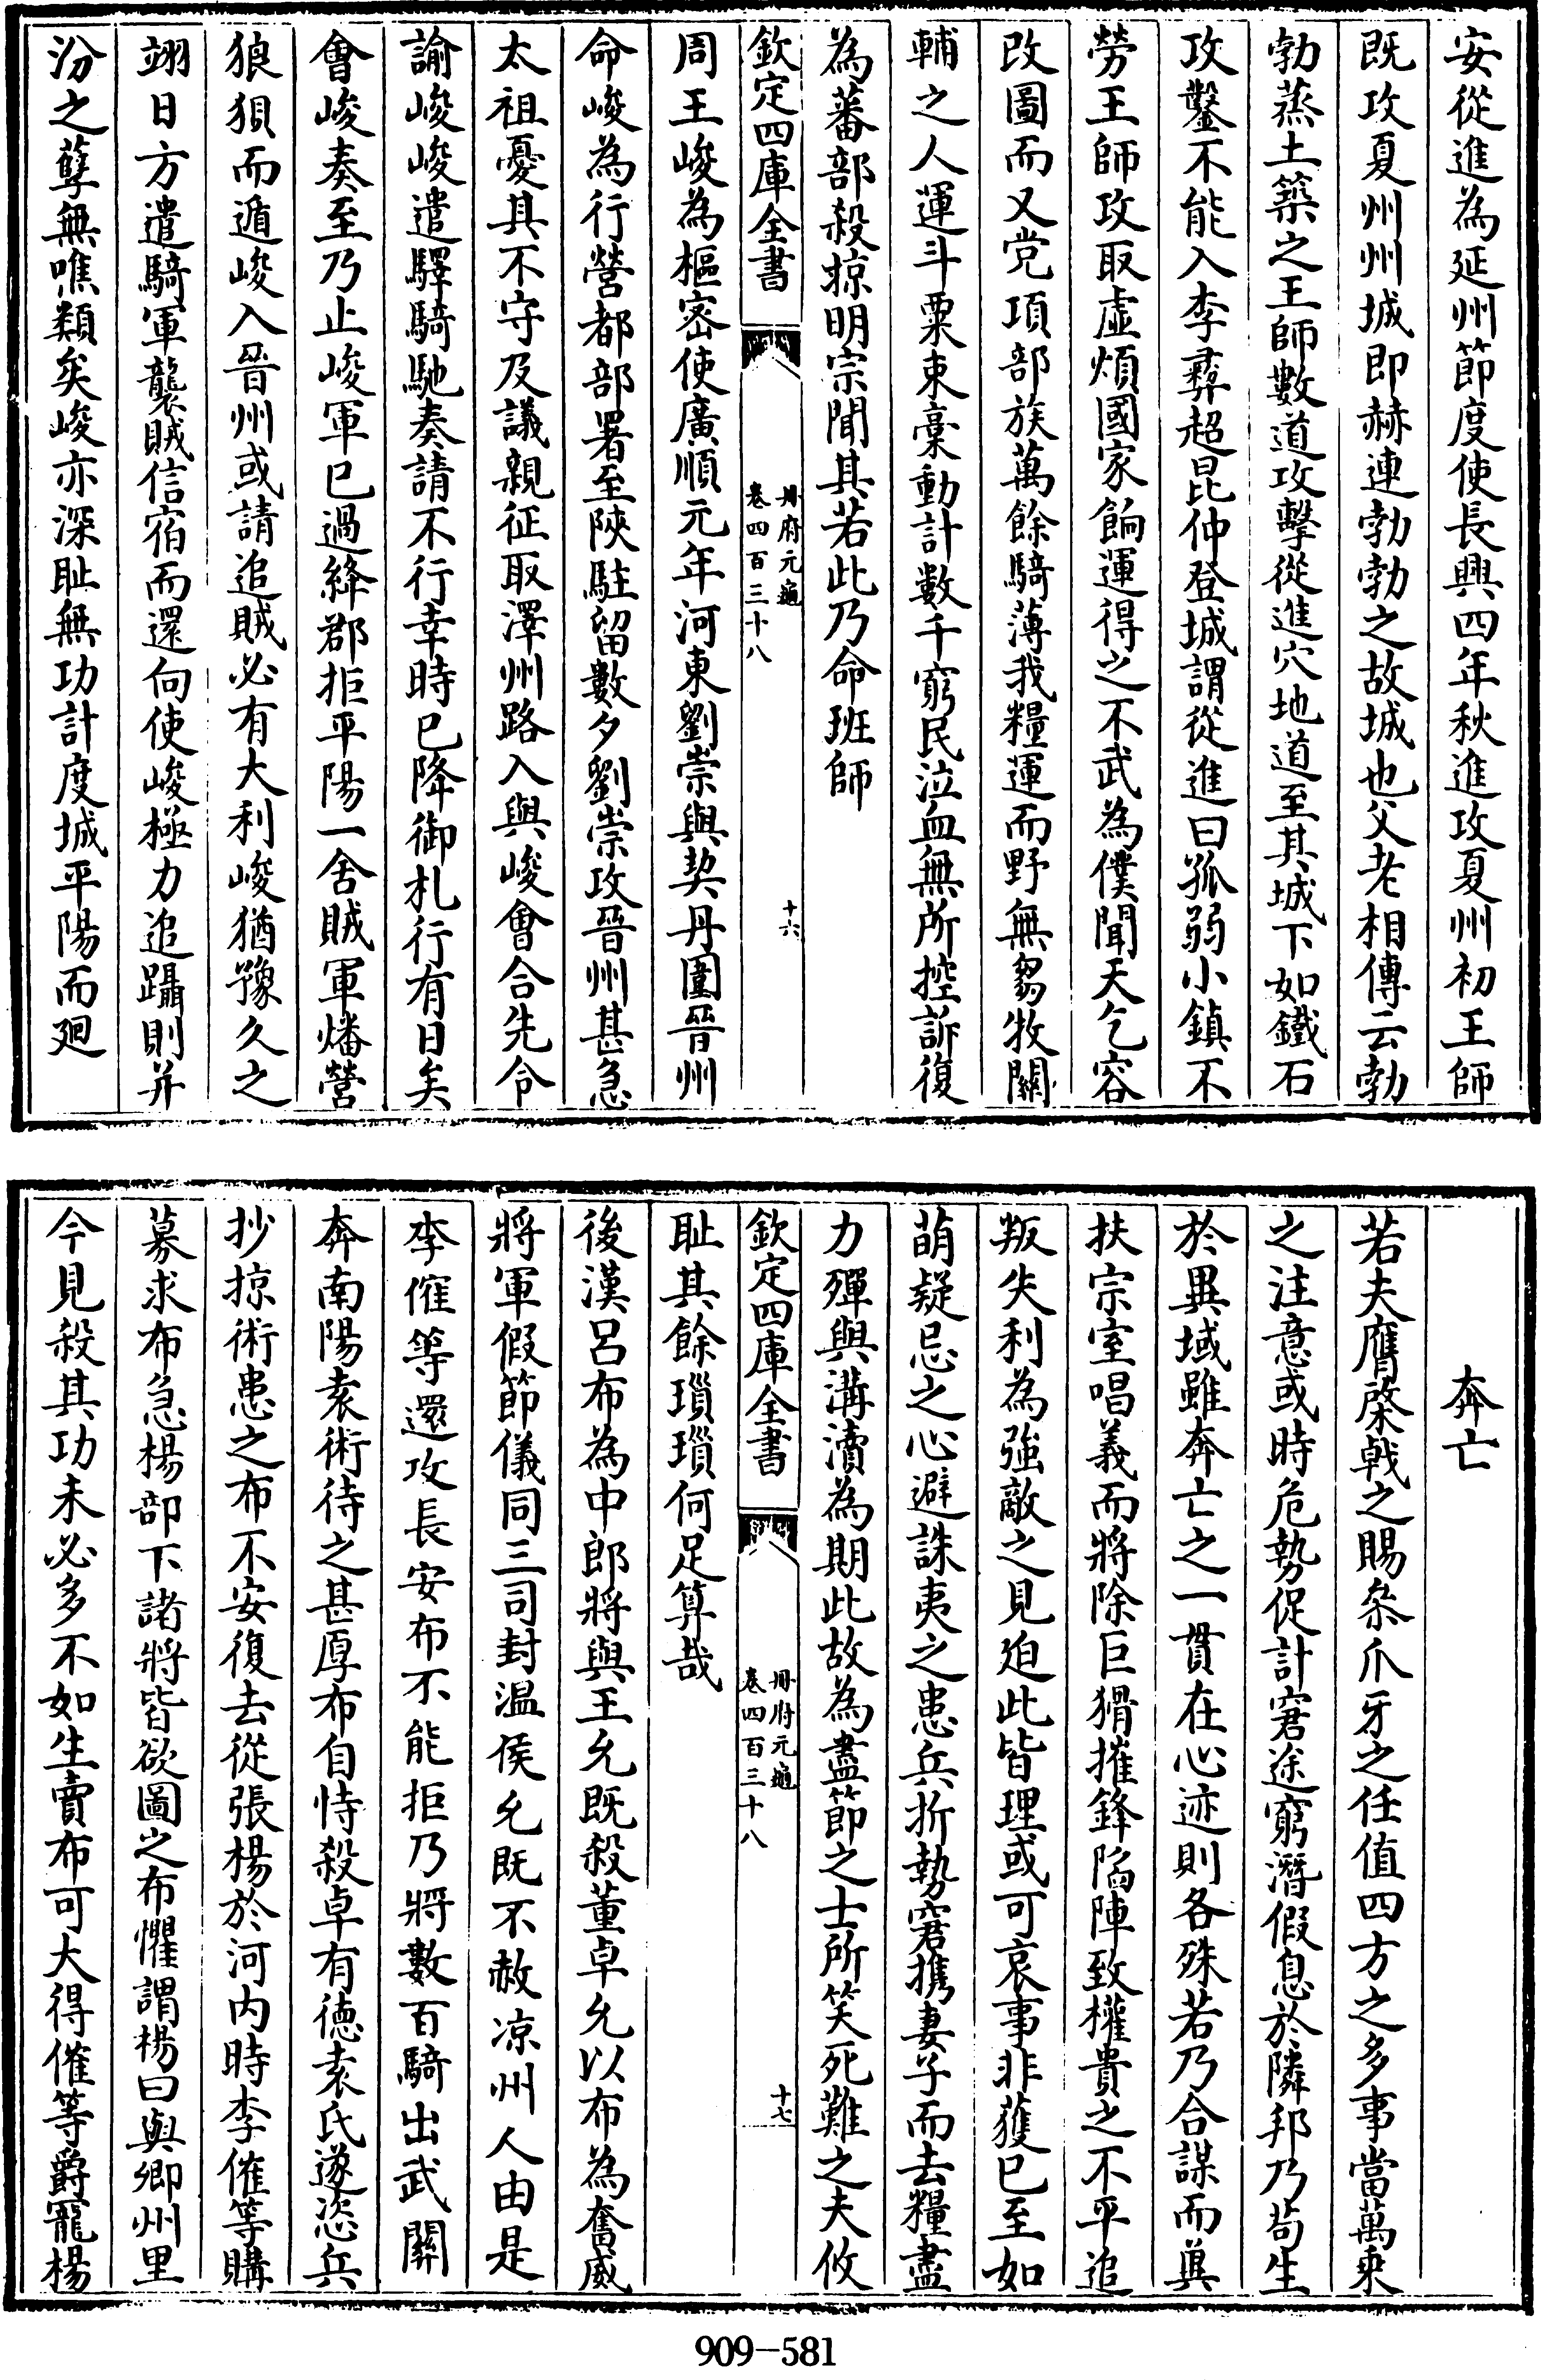 安從進為延州節度使長興四年秋進攻夏州初王師
既攻夏州州城即赫連勃勃之故城也父老相傳云勃
勃蒸土築之王師數道攻擊從進穴地道至其城下如鐵石
攻鑿不能入李彞超昆仲登城謂從進曰孤弱小鎮不
勞王師攻取虛煩國家餉運得之不武為僕聞天乞容
改圖而又党項部族萬餘騎薄我糧運而野無芻牧關
輔之人運斗粟束藁動計數千窮民泣血無所控訴復
為蕃部殺掠明宗聞其若此乃命班師
欽定四庫全書
冊府元龜
卷四百三十八
十六
周王峻為樞密使廣順元年河東劉崇與契丹圍晉州
命峻為行營都部署至陝駐留數夕劉崇攻晉州甚急
太祖憂其不守及議親征取澤州路入與峻會合先令
諭峻峻遣驛騎馳奏請不行幸時已降御札行有日矣
會峻奏至乃止峻軍已過絳郡拒平陽一舍賊軍燔營
狼狽而遁峻入晉州或請追賊必有大利峻猶豫久之
翊日方遣騎軍襲賊信宿而還向使峻極力追躡則并
汾之孽無噍類矣峻亦深耻無功計度城平陽而廻
奔亡
若夫膺棨戟之賜叅爪牙之任值四方之多事當萬乘
之注意或時危勢促計窘途窮潛假息於隣邦乃茍生
於異域雖奔亡之一貫在心迹則各殊若乃合謀而奠
扶宗室唱義而將除巨猾摧鋒陷陣致權貴之不平追
叛失利為強敵之見迫此皆理或可哀事非獲已至如
萌疑忌之心避誅夷之患兵折勢窘携妻子而去糧盡
力殫與溝瀆為期此故為盡節之士所笑死難之夫攸
欽定四庫全書
冊府元龜
卷四百三十八
十七
耻其餘瑣瑣何足算哉
後漢呂布為中郎將與王允既殺董卓允以布為奮威
將軍假節儀同三司封温侯允既不赦凉州人由是
李傕等還攻長安布不能拒乃將數百騎出武關
奔南陽袁術待之甚厚布自恃殺卓有德袁氏遂恣兵
抄掠術患之布不安復去從張楊於河内時李傕等購
募求布急楊部下諸將皆欲圖之布懼謂楊曰與卿州里
今見殺其功未必多不如生賣布可大得傕等爵寵楊
909-581